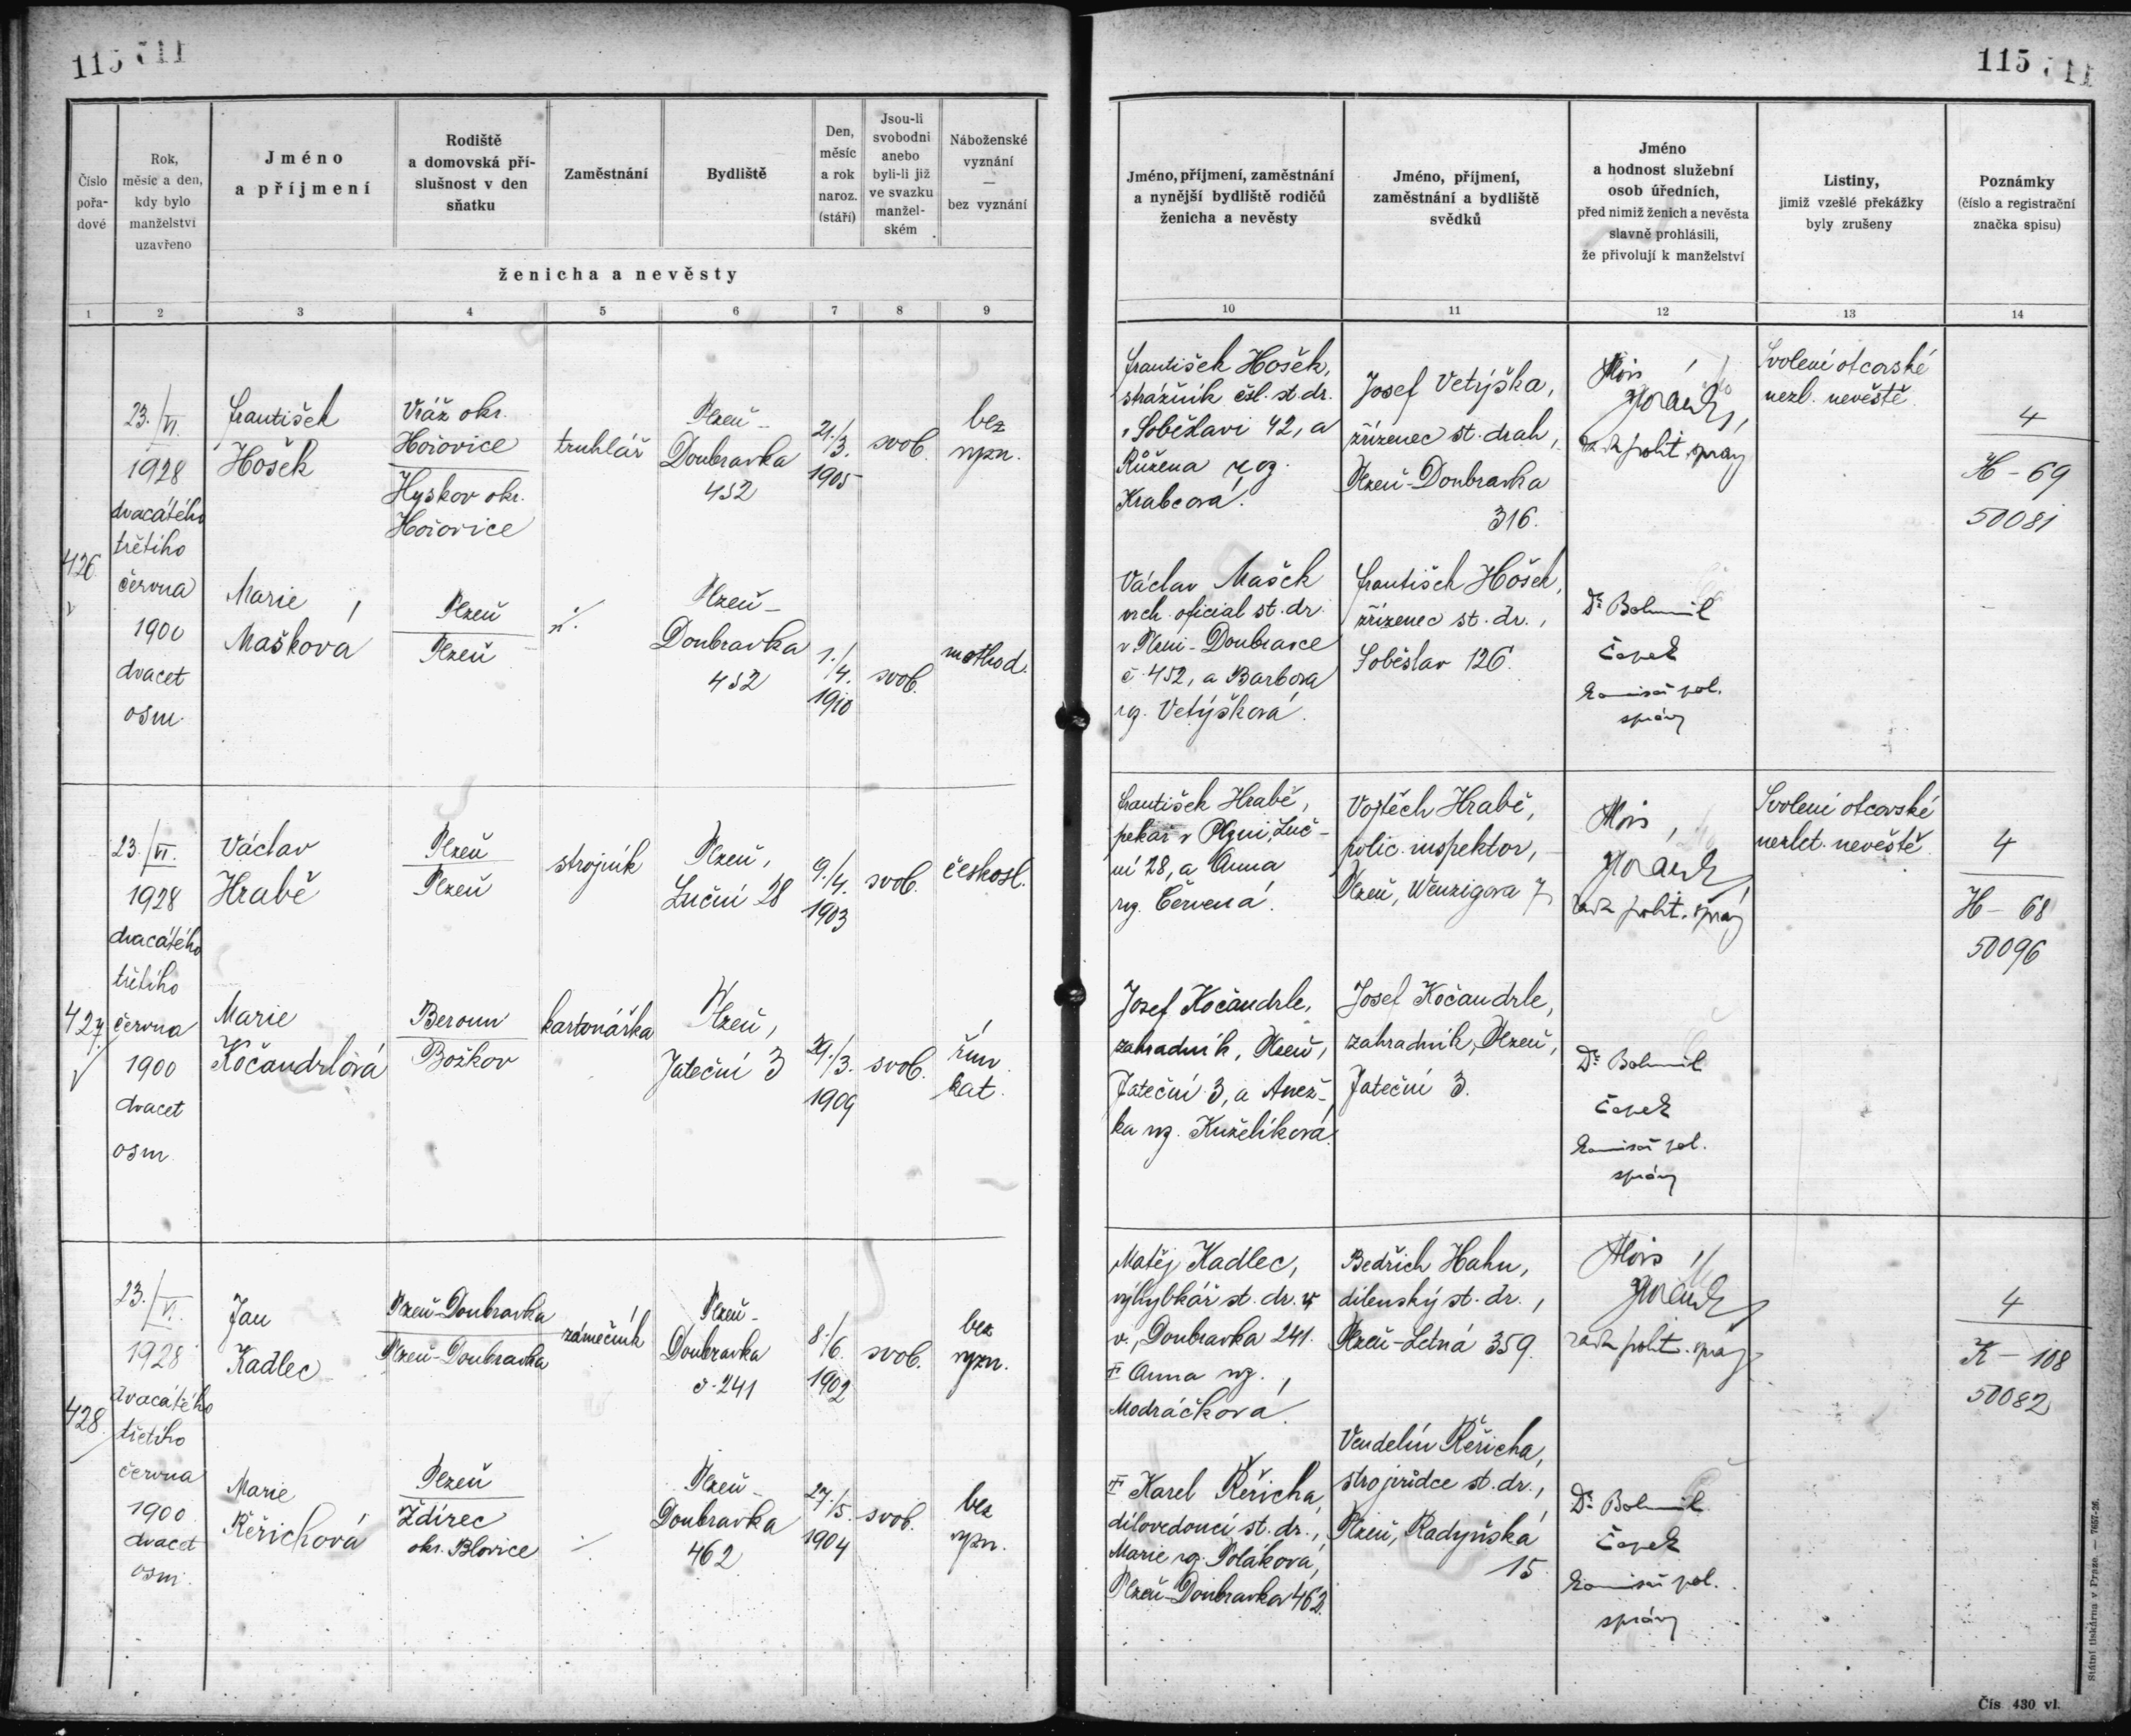 115
115
Číslo pořa-dové
Rok, měsíc a den, kdy bylo manželství uzavřeno
Jméno a příjmení
Rodiště a domovská pří-slušnost v den sňatku
Zaměstnání
Bydliště
Den, měsíc a rok naroz. (stáří)
Jsou-li svobodni anebo byli-li již ve svazku manžel-ském
Náboženské vyznání — bez vyznání
ženicha a nevěsty
Jméno, příjmení, zaměstnání a nynější bydliště rodičů ženicha a nevěsty
Jméno, příjmení, zaměstnání a bydliště svědků
Jméno a hodnost služební osob úředních, před nimiž ženich a nevěsta slavně prohlásili, že přivolují k manželství
Listiny, jimiž vzešlé překážky byly zrušeny
Poznámky (číslo a registrační značka spisu)
1 2 3 4 5 6 7 8 9 10 11 12 13 14
426
23./VI.
1928
dvacátého
třetího
června
1900
dvacet
osm.
František
Hošek
Vráž okr.
Hořovice
Hyskov okr.
Hořovice
truhlář
Plzeň-
Doubravka
452
21./3.
1905
svob.
bez
vyzn.
Marie
Mašková
Plzeň
Plzeň
Plzeň-
Doubravka
452
1./4.
1910
svob.
method.
František Hošek,
strážník čsl. st. dr.
v Soběslavi 42, a
Růžena roz.
Krabcová.
Josef Vetýška,
zřízenec st. drah,
Plzeň-Doubravka
316.
Alois
rada polit. správy
Svolení otcovské
nezl. nevěstě.
4
H - 69
50081
Václav Mašek
vrch. oficial st. dr.
v Plzni-Doubravce
č. 452, a Barbora
rz. Vetýšková.
František Hošek,
zřízenec st. dr.,
Soběslav 126.
Dr. Bohumil
Čapek
komisař pol.
správy
427.
23./VI.
1928
dvacátého
třetího
června
1900
dvacet
osm
Václav
Hrabě
Plzeň
Plzeň
strojník
Plzeň,
Luční 28
9./4.
1903
svob.
českosl.
Marie
Kočandrlová
Beroun
Božkov
kartonářka
Plzeň,
Jateční 3
29./3.
1909
svob.
řím.
kat.
František Hrabě,
pekař v Plzni, Luč-
ní 28, a Anna
rz. Červená.
Vojtěch Hrabě,
polic. inspektor,
Plzeň, Wenzigova 7
Alois
rada polit. správy
Svolení otcovské
nezlet. nevěstě.
4
H - 68
50096
Josef Kočandrle,
zahradník, Plzeň,
Jateční 3, a Anež-
ka rz. Kuželíková.
Josef Kočandrle,
zahradník, Plzeň,
Jateční 3.
Dr. Bohumil
Čapek
komisař pol.
správy
428.
23./VI.
1928
dvacátého
třetího
června
1900
dvacet
osm.
Jan
Kadlec
Plzeň-Doubravka
Plzeň-Doubravka
zámečník
Plzeň-
Doubravka
č. 241
8./6.
1902
svob.
bez
vyzn.
Marie
Řeřichová
Plzeň
Ždírec
okr. Blovice
Plzeň-
Doubravka
462
27./5.
1904
svob.
bez
vyzn.
Matěj Kadlec,
výhybkář st. dr. v
v., Doubravka 241.
Anna rz.
Modráčková.
Bedřich Hahn,
dílenský st. dr.,
Plzeň-Letná 359.
Alois
rada polit. správy
4
K - 108
50082
Karel Řeřicha,
dílovedoucí st. dr.,
Marie rz. Poláková,
Plzeň-Doubravka 462.
Vendelín Řeřicha,
strojvůdce st. dr.,
Plzeň, Radyňská
15.
Dr. Bohumil
Čapek
komisař pol.
správy
Státní tiskárna v Praze. — 7657-26.
Čís. 430 vl.